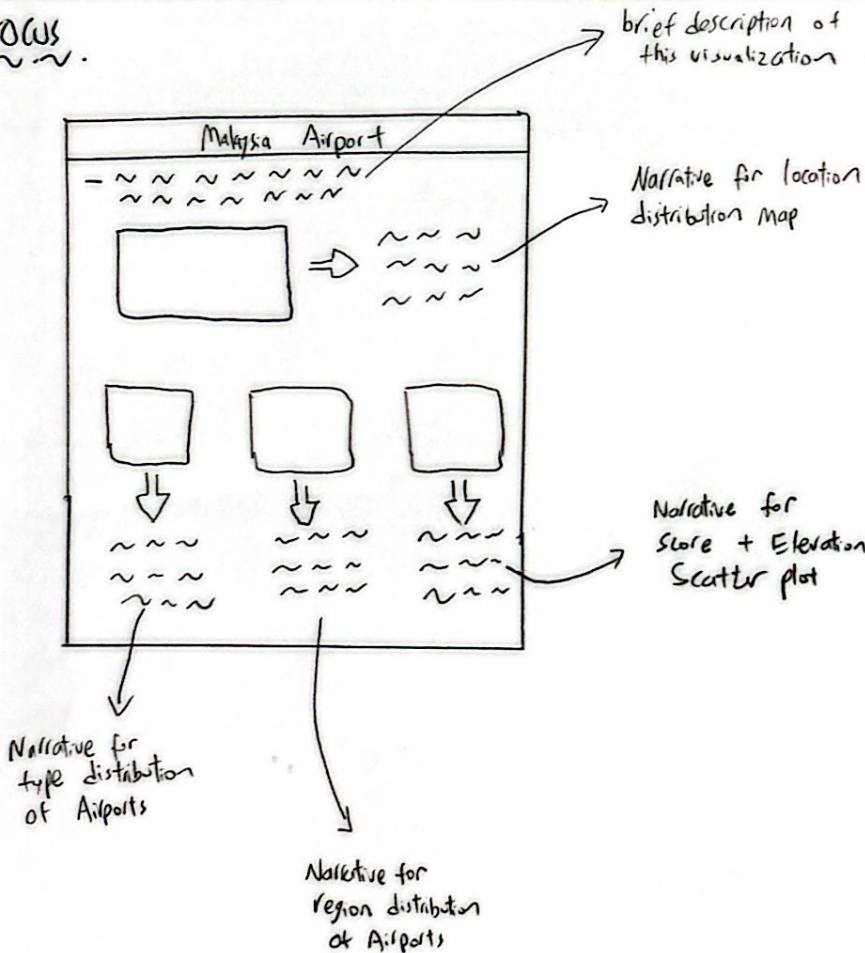 OCUS
brief description of
this visualization
Malaysia Airport
Narrative for location
distribution map
Narrative for
Score + Elevation
Scatter plot
Narrative for
type distribution
of Airports
Narrative for
region distribution
of Airports